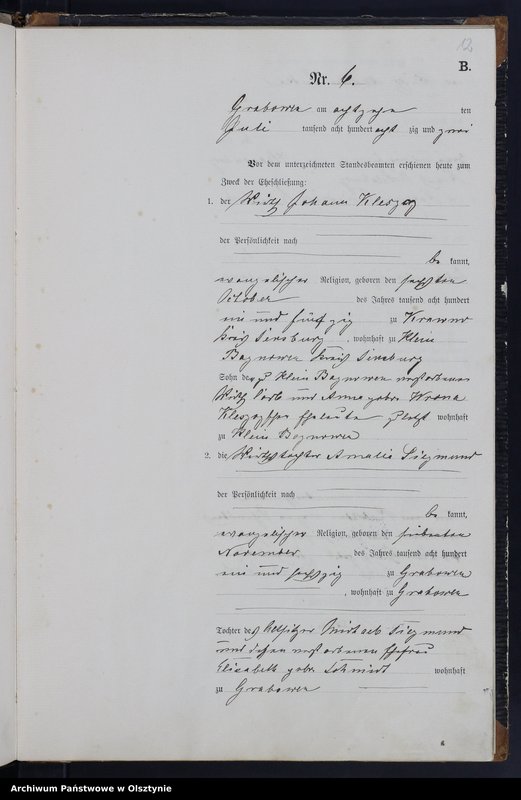 12
B.
Nr. 6.
Grabowen am achtzehn ten
Juli tausend acht hundert acht zig und zwei
Vor dem unterzeichneten Standesbeamten erschienen heute zum
Zweck der Eheschließung:
1. der Wirth Johann Kleszcz
der Persönlichkeit nach
be kannt,
evangelischer Religion, geboren den sechsten
October des Jahres tausend acht hundert
ein und fünfzig zu Krawno
Kreis Sensburg, wohnhaft zu Klein
Bagnowen Kreis Sensburg
Sohn der zu Klein Bagnowen verstorbenen
Wirth und Anna gebr. Wrona
Eheleute zuletzt wohnhaft
zu Klein Bagnowen
2. die Wirthstochter Amalie Siegmund
der Persönlichkeit nach
be kannt,
evangelischer Religion, geboren den siebenten
November des Jahres tausend acht hundert
ein und sechszig zu Grabowen
, wohnhaft zu Grabowen
Tochter des Besitzer Michael Siegmund
und dessen verstorbenen Ehefrau
Elisabeth gebr. Schmidt wohnhaft
zu Grabowen
Archiwum Państwowe w Olsztynie